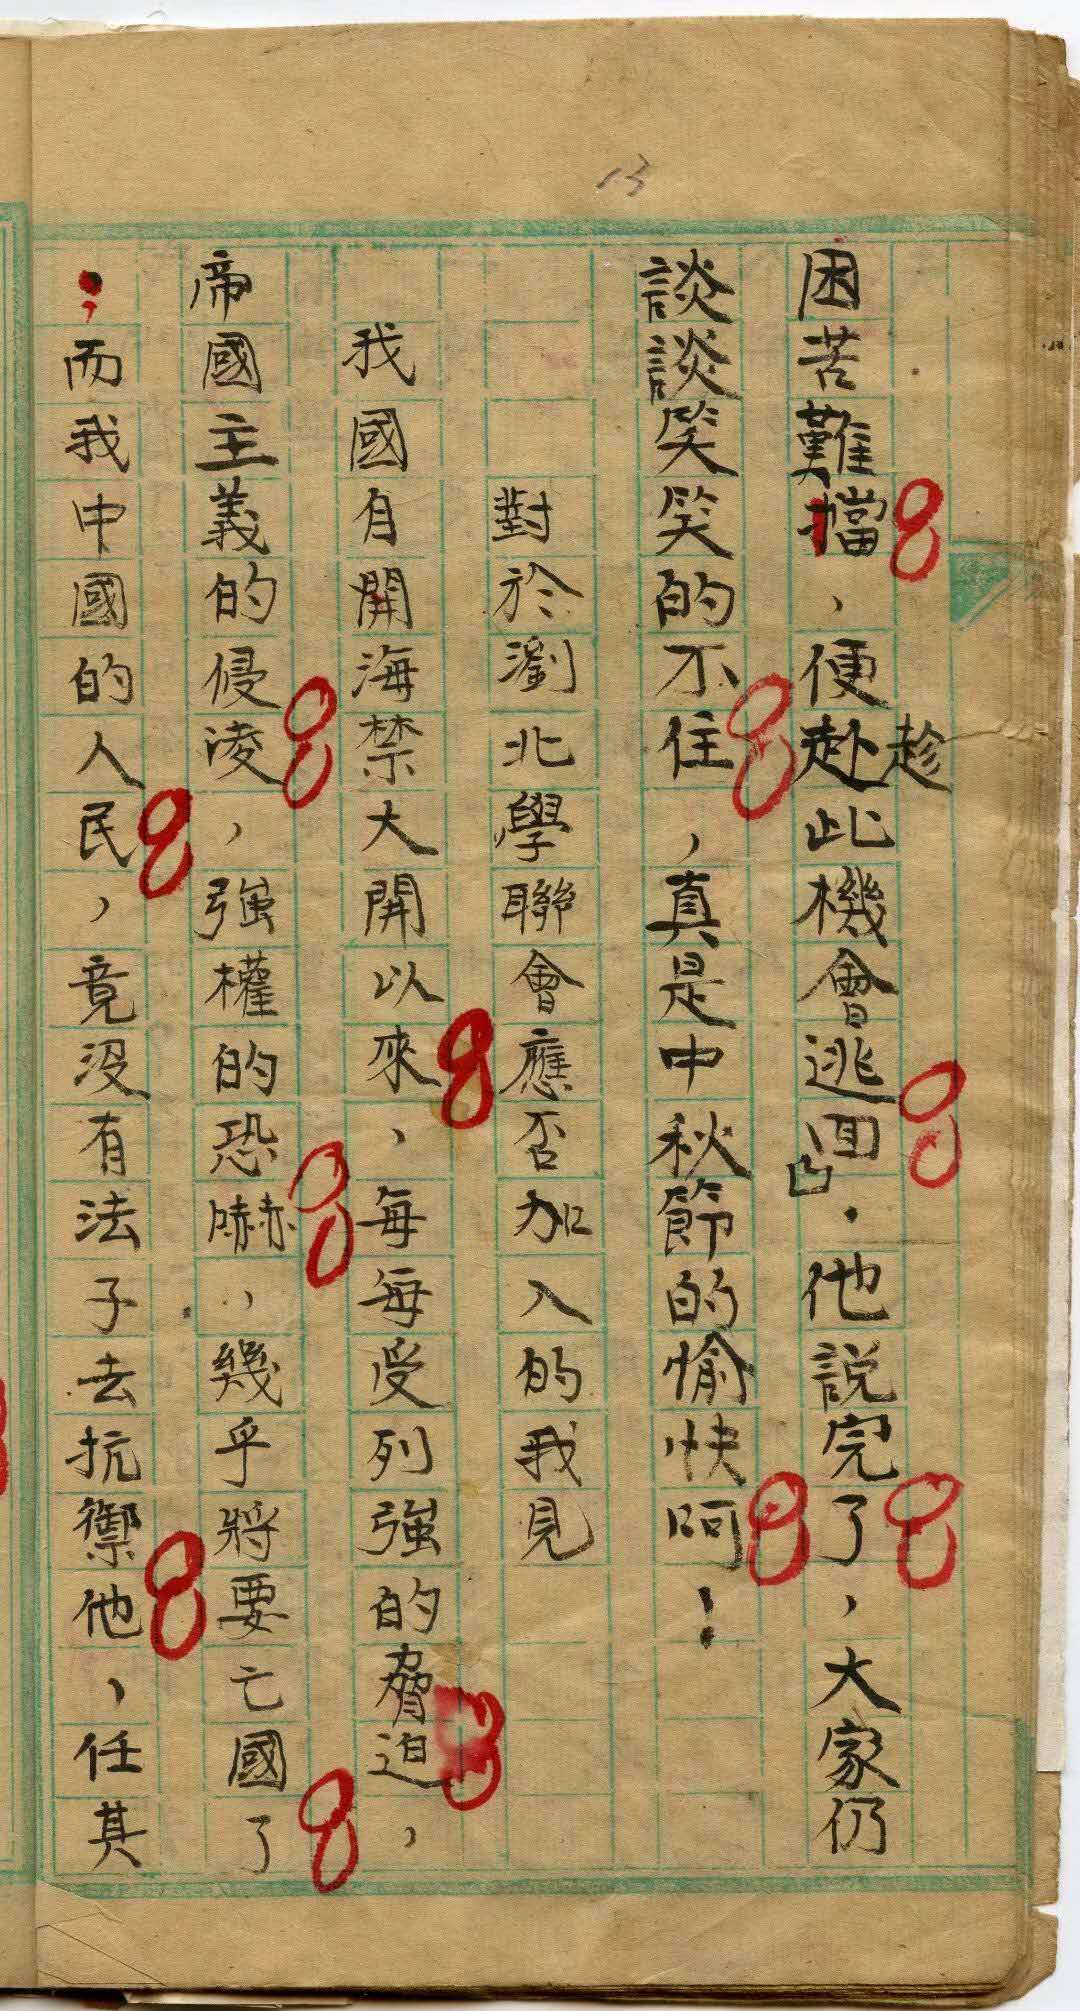 13
困苦難擋，便赴此機會逃回」．他說完了，大家仍
趁
談談笑笑的不住，真是中秋節的愉快呵！
對於瀏北學聯會應否加入的我見
我國自開海禁大開以來，每每受列強的脅迫，
帝國主義的侵凌，強權的恐嚇，幾乎將要亡國了
；而我中國的人民，竟沒有法子去抗禦他，任其